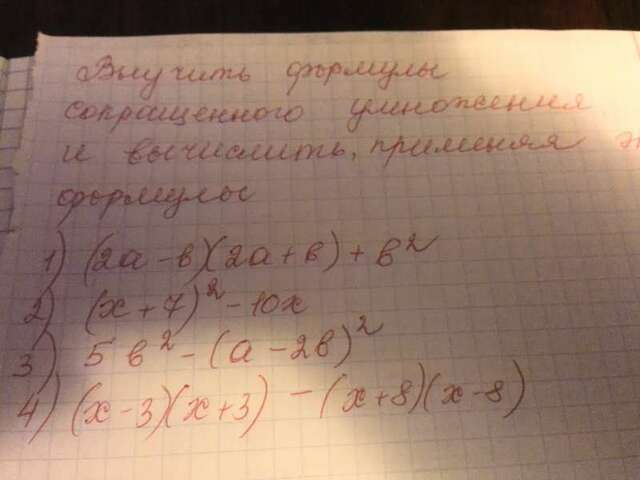 Выучить формулы
сокращенного умножения
и вычислить, применяя
формулы
1) (2a - b)(2a + b) + b²
2) (x + 7)² - 10x
3) 5b² - (a - 2b)²
4) (x - 3)(x + 3) - (x + 8)(x - 8)